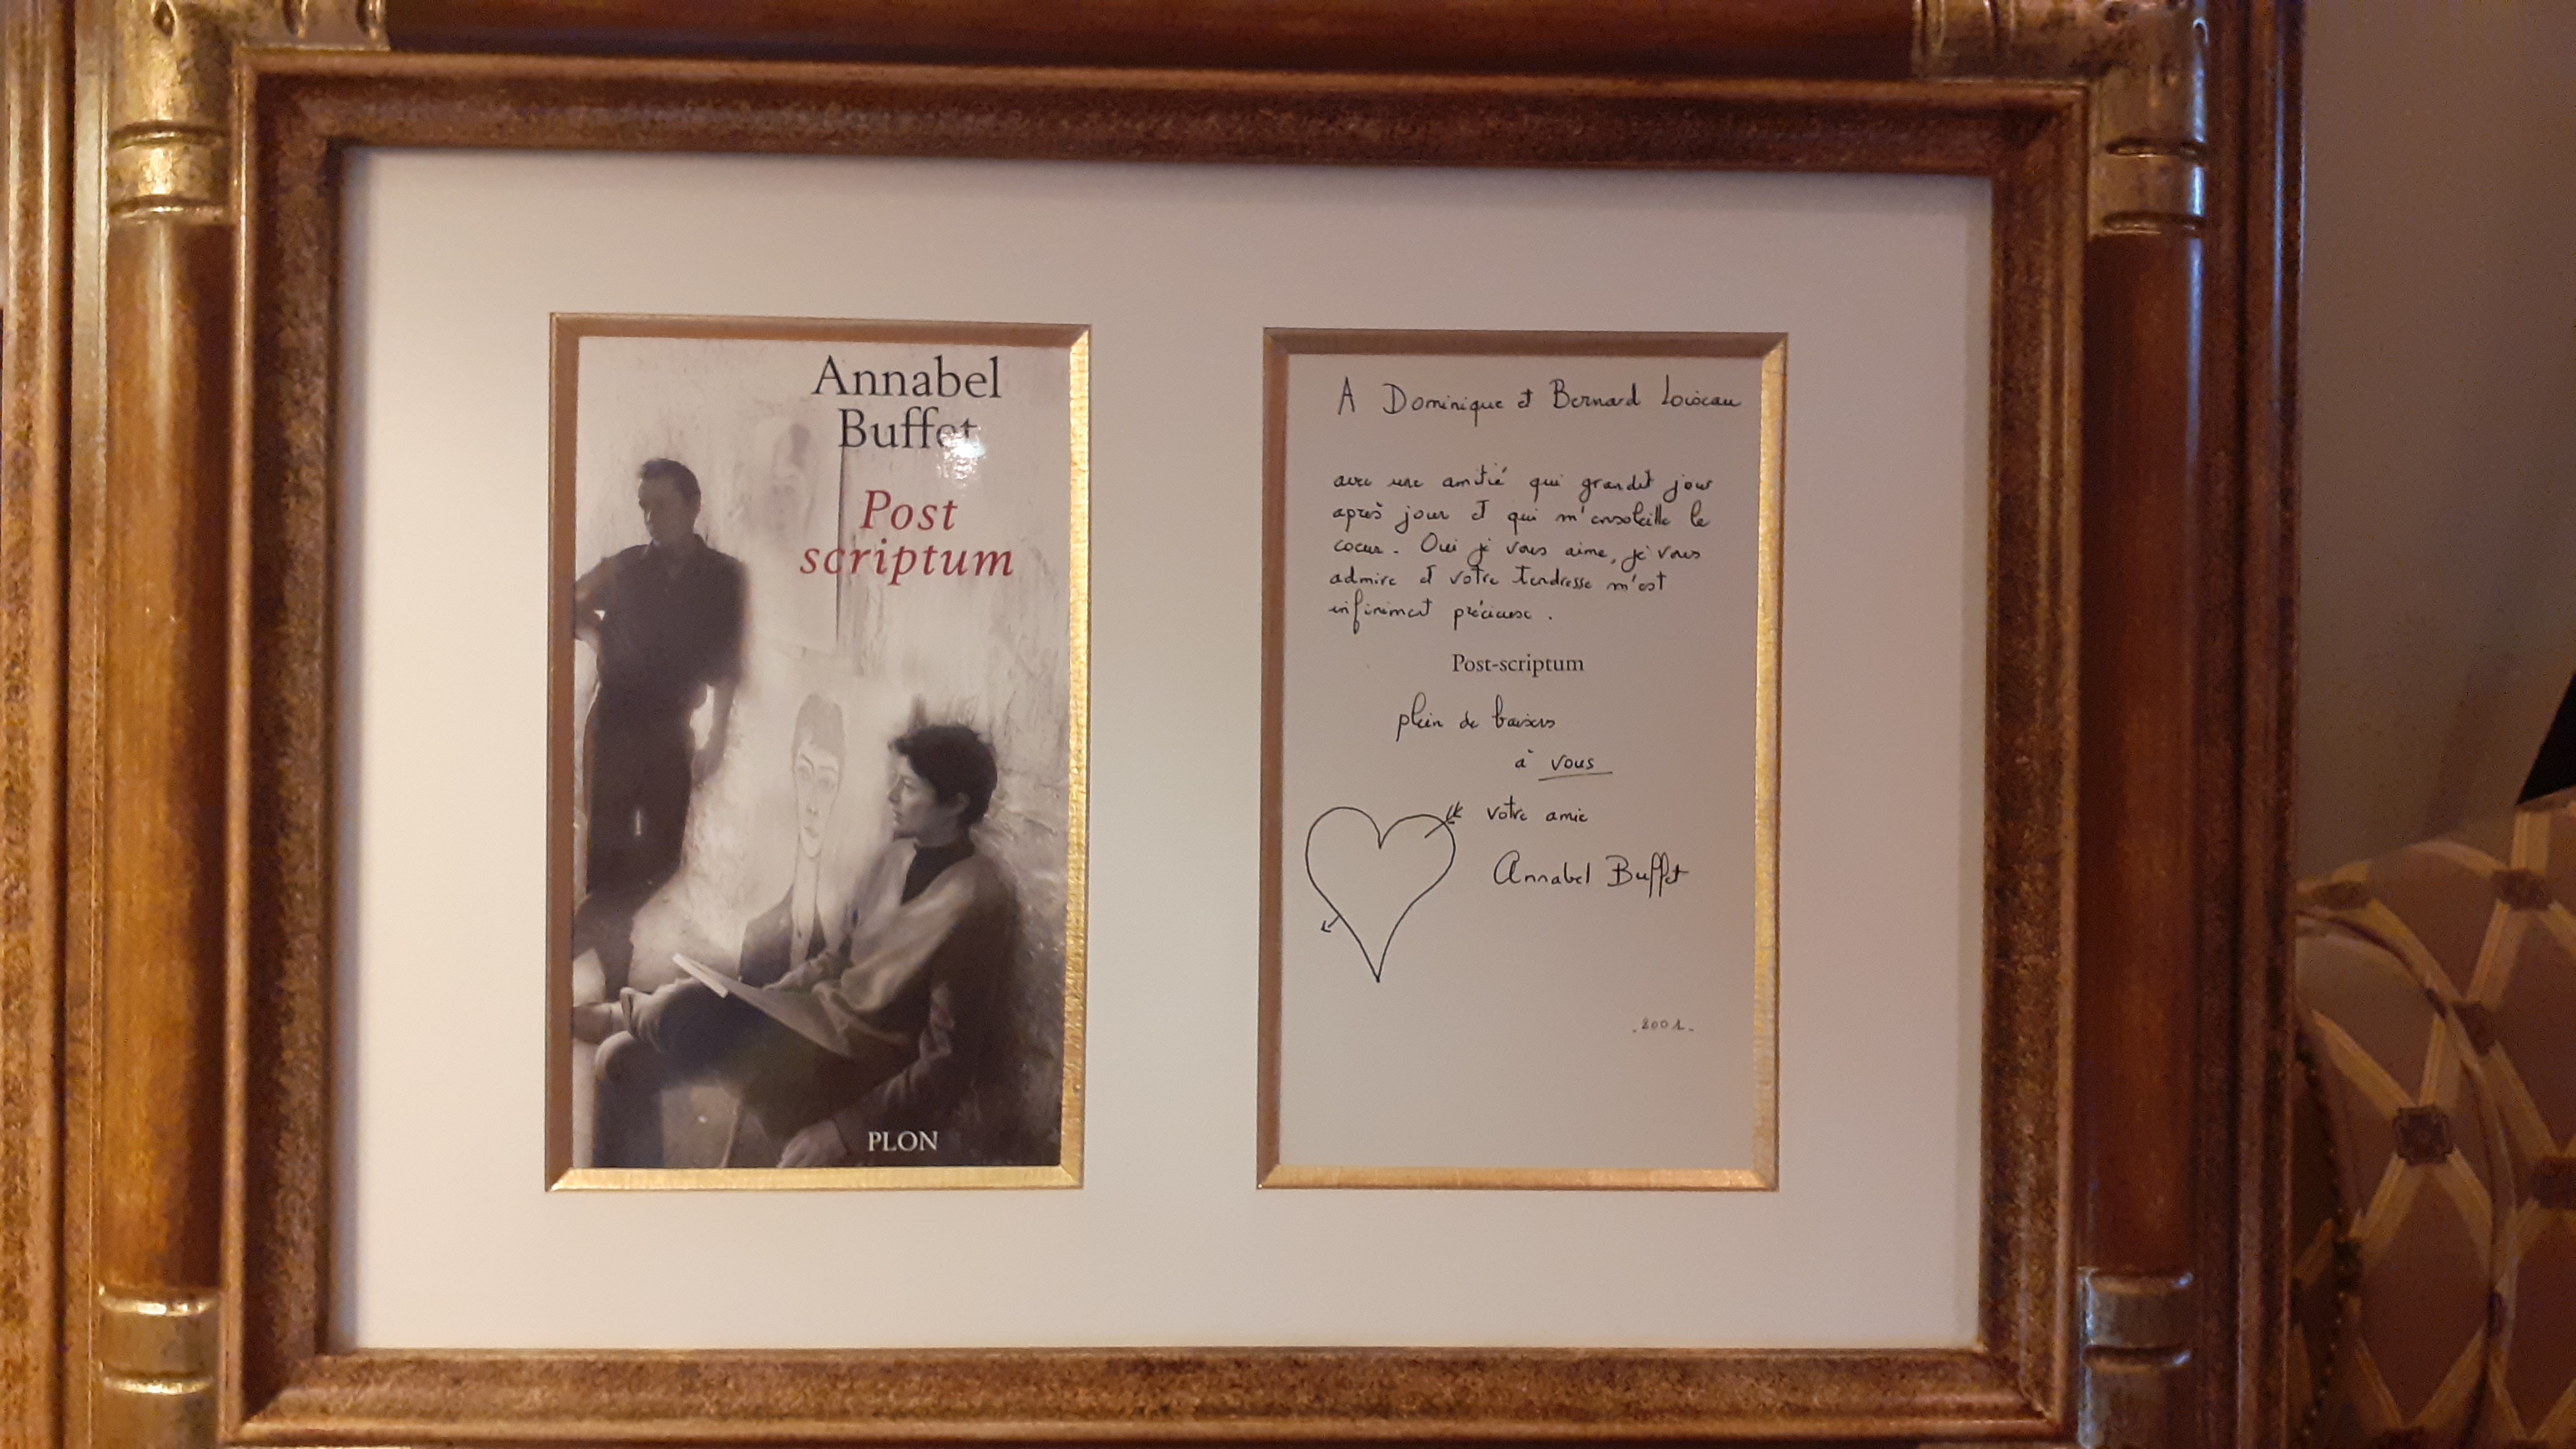 Annabel
Buffet
Post
scriptum
PLON
A Dominique et Bernard Loiseau
avec une amitié qui grandit jour
après jour et qui m'ensoleille le
coeur. Oui je vous aime, je vous
admire et votre tendresse m'est
infiniment précieuse.
Post-scriptum
plein de baisers
à vous
votre amie
Annabel Buffet
-2001-